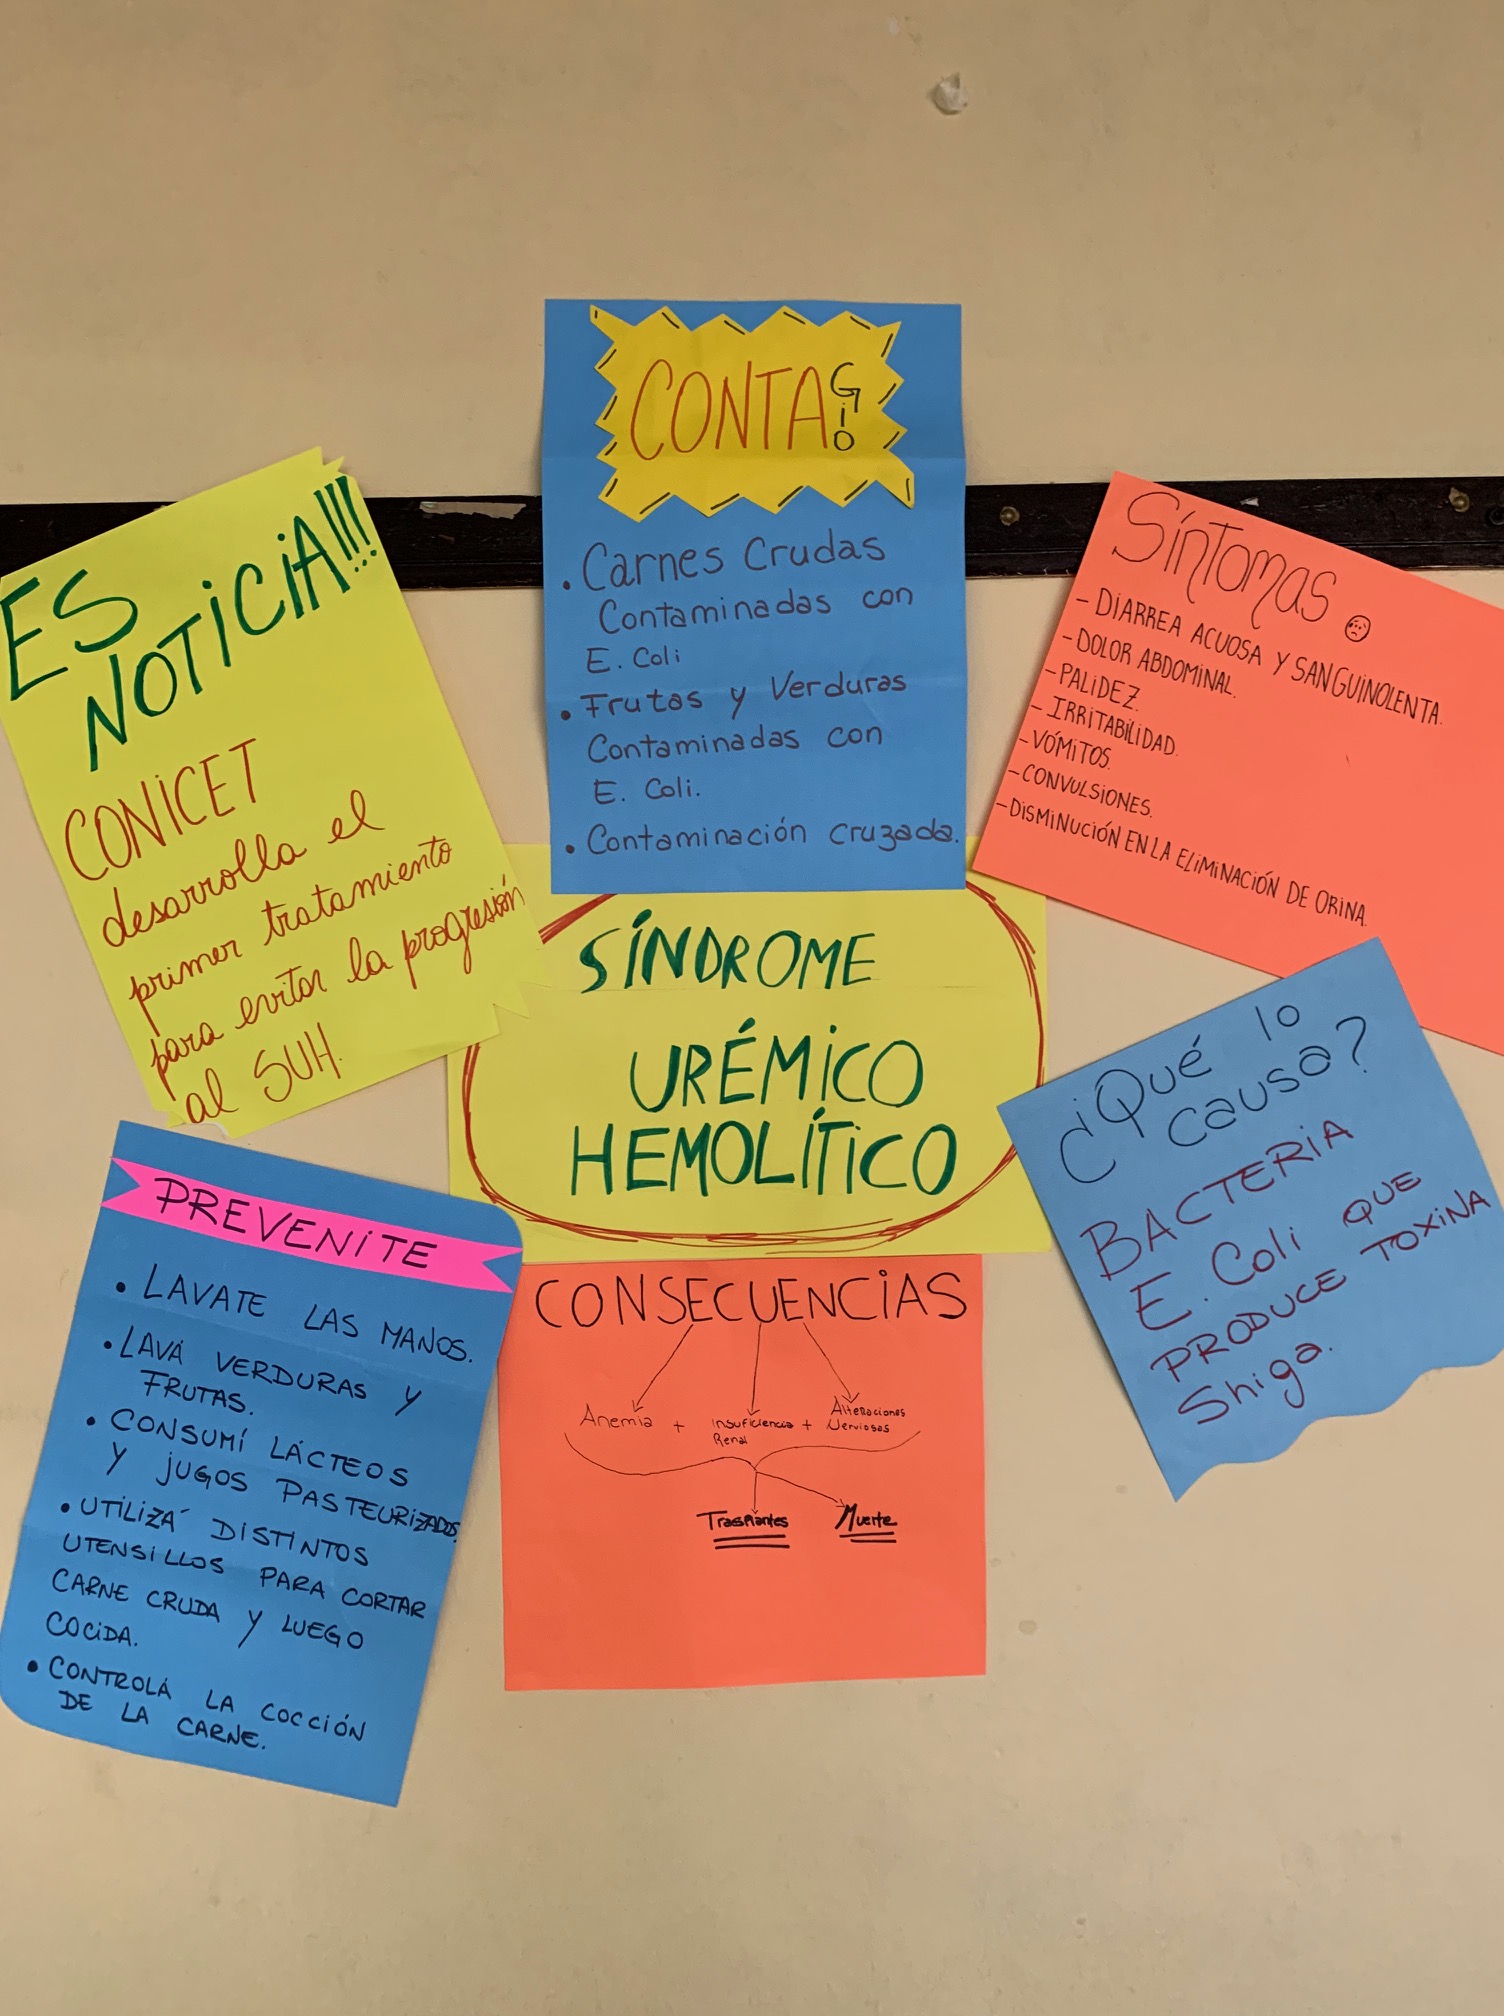 CONTAGiO
• Carnes Crudas
Contaminadas con
E. Coli
• Frutas y Verduras
Contaminadas con
E. Coli.
• Contaminación cruzada.
ES
NOTiCiA!!!
CONiCET
desarrolla el
primer tratamiento
para evitar la progresión
al SUH.
Síntomas
- DiARREA ACUOSA Y SANGUiNOLENTA.
- DOLOR ABDOMiNAL.
- PALiDEZ.
- IRRiTABiLiDAD.
- VÓMiTOS.
- CONVULSiONES.
- DiSMiNUCiÓN EN LA ELiMiNACiÓN DE ORiNA.
SÍNDROME
URÉMiCO
HEMOLÍTiCO
¿Qué lo
causa?
BACTERiA
E. Coli QUE
PRODUCE TOXiNA
Shiga.
PREVENiTE
• LAVATE LAS MANOS.
• LAVÁ VERDURAS Y
FRUTAS.
• CONSUMÍ LÁCTEOS
Y JUGOS PASTEURiZADOS.
• UTiLiZÁ DiSTiNTOS
UTENSiLLOS PARA CORTAR
CARNE CRUDA Y LUEGO
COCiDA.
• CONTROLÁ LA COCCiÓN
DE LA CARNE.
CONSECUENCiAS
Anemia + Insuficiencia Renal + Alteraciones Nerviosas
Trasplantes Muerte